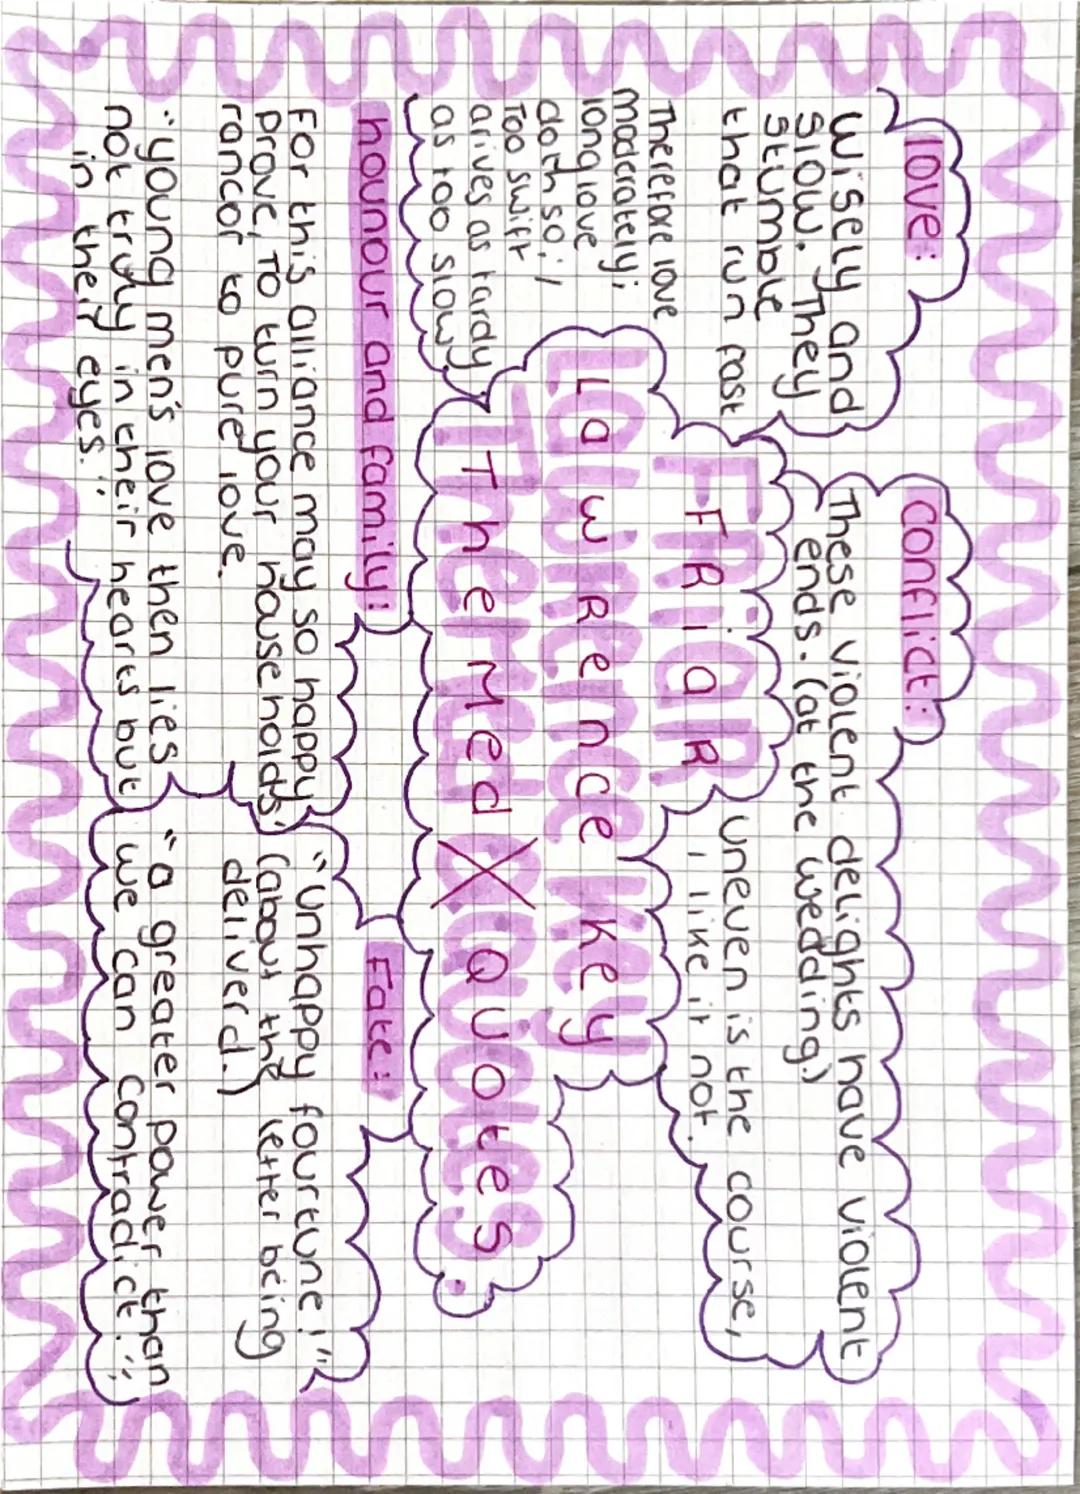 love:
Wisely and
slow. They
stumble
that run fast
Therefore love
moderately;
long love
doth so; /
Too swift
arives as tardy
as too slow
Conflict:
These violent delights have violent
ends. (at the wedding.)
Uneven is the course,
I like it not.
FRiaR
LawRence key
Themed X Quotes.
hounour and family:
For this alliance may so happy
prove, To turn your households'
rancor to pure love.
"young men's love then lies
not truly in their hearts but
in their eyes."
Fate:
"Unhappy fourtune!"
(about the letter being
deliverd.)
"a greater power than
we can contradict."